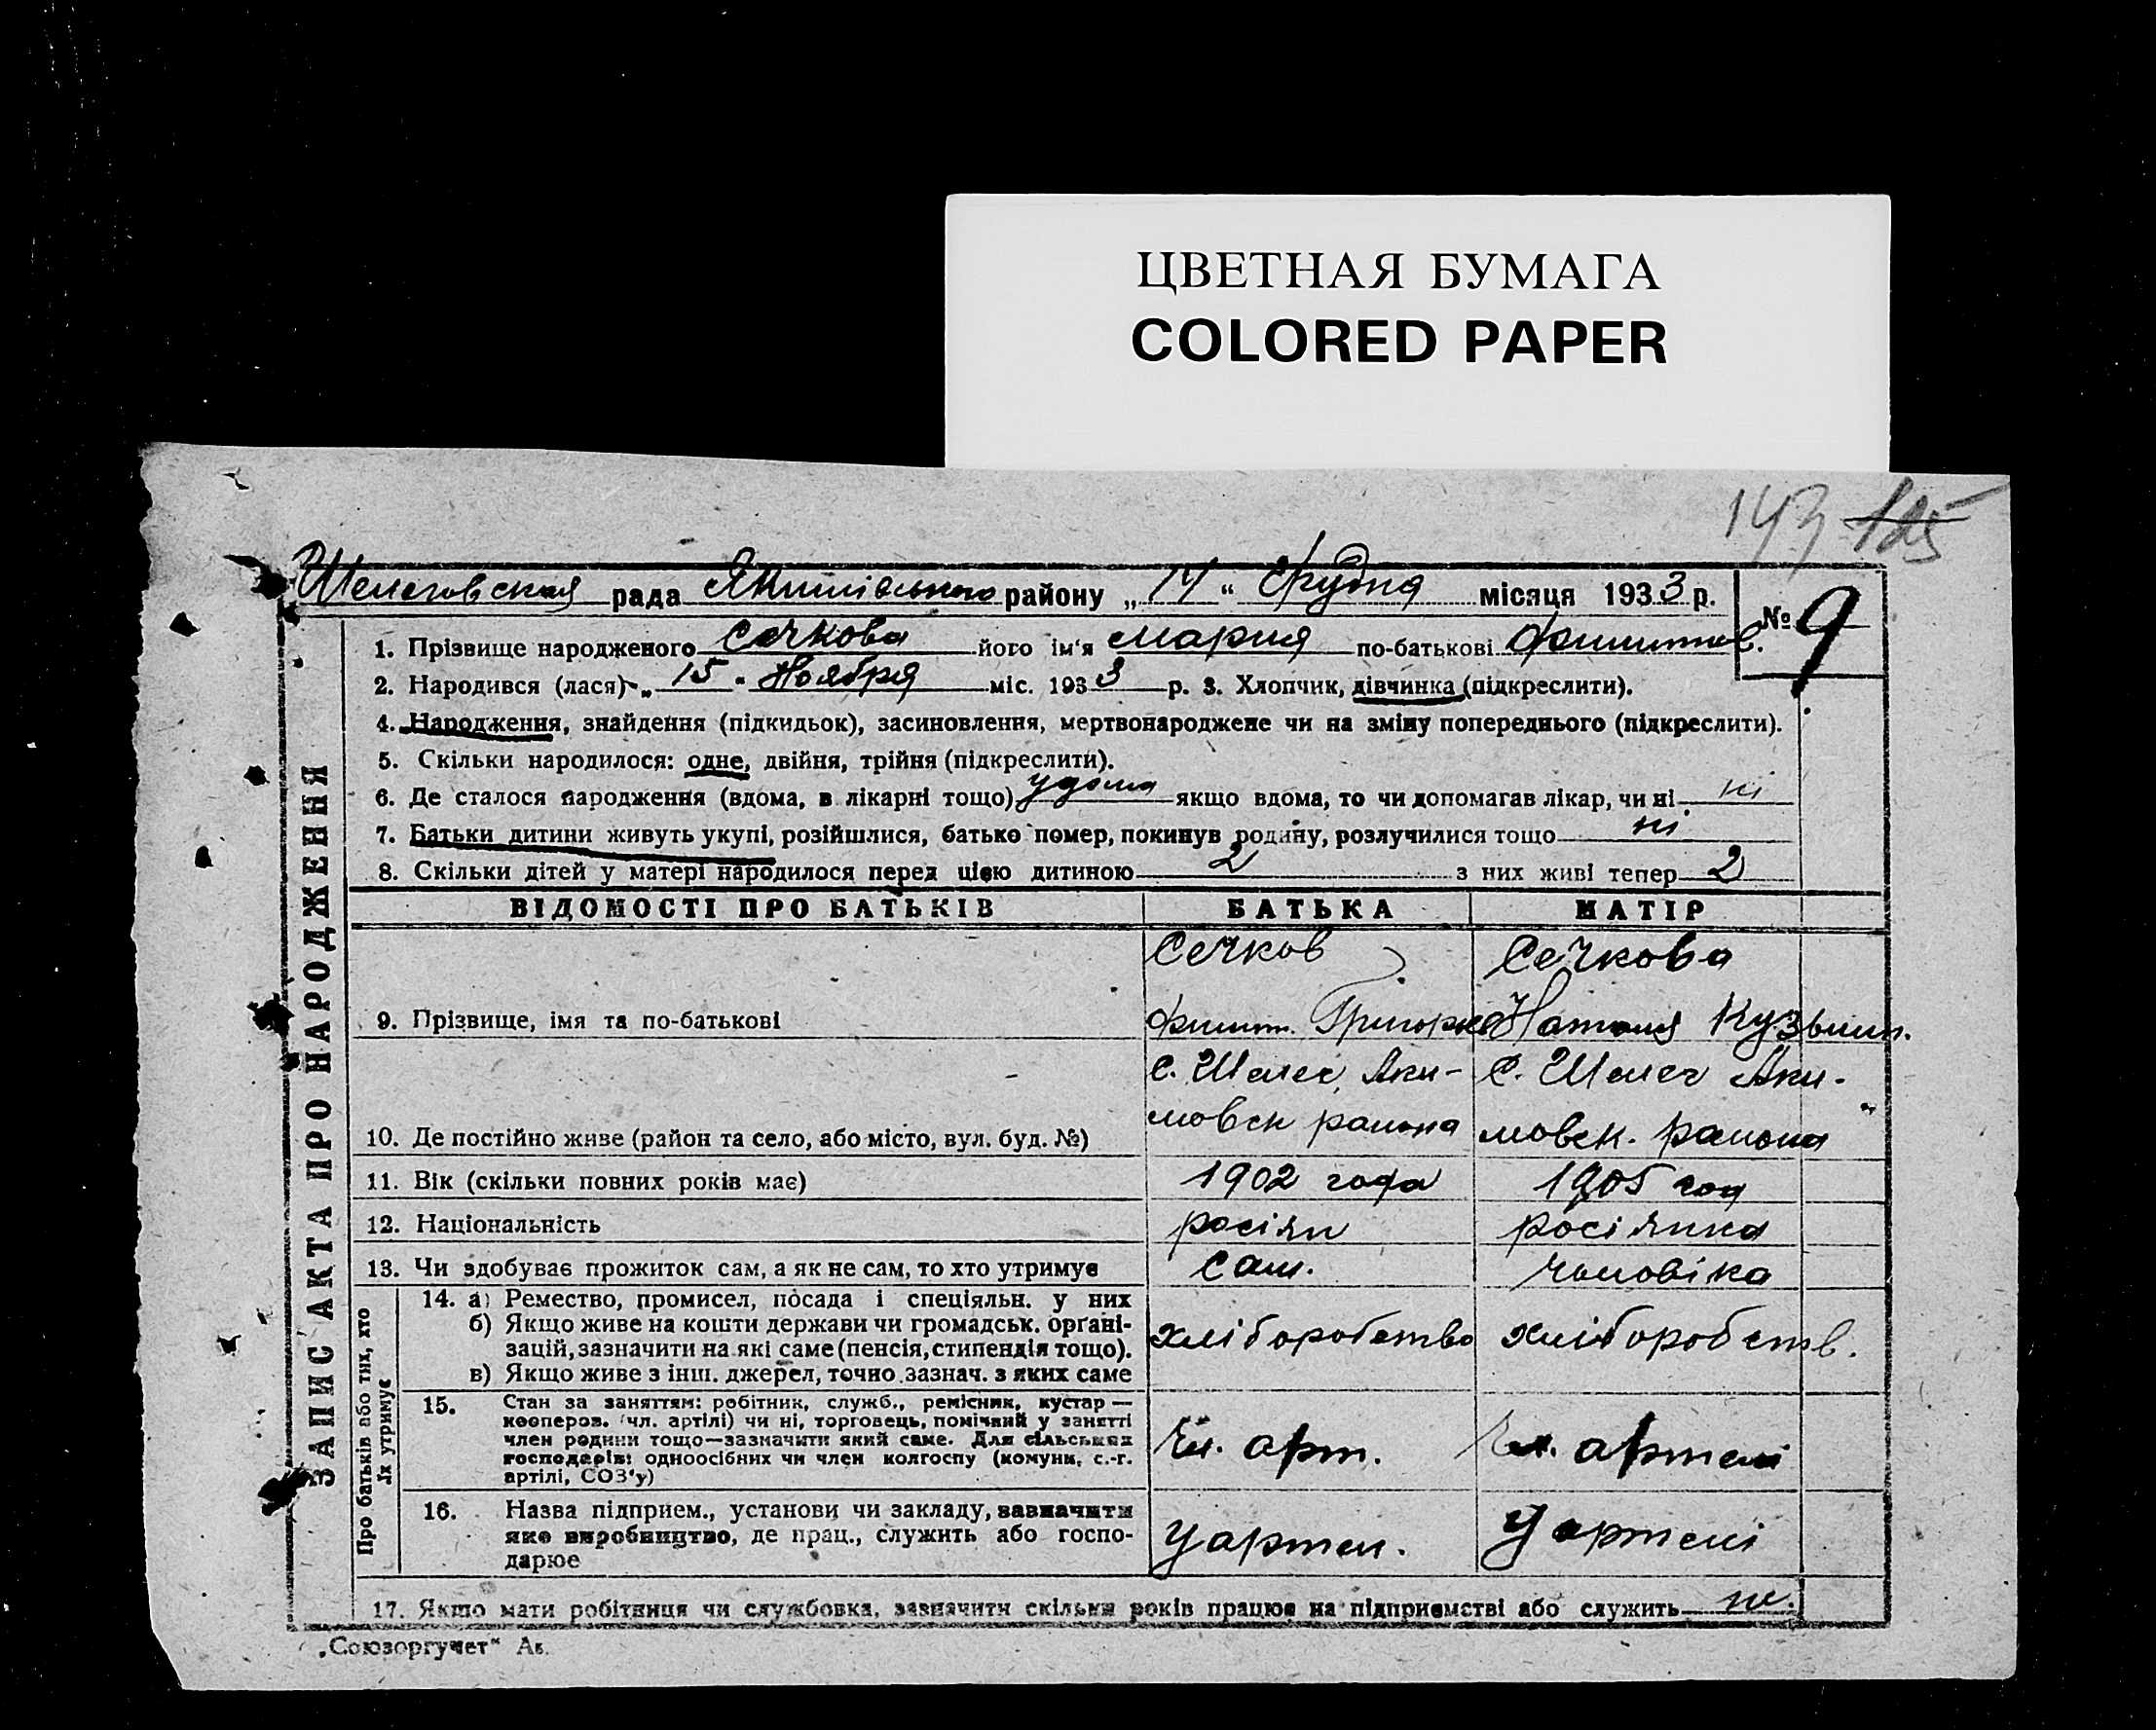 ЦВЕТНАЯ БУМАГА
COLORED PAPER
143 125
Шелеговская рада Якимівського району „14“ Грудня місяця 1933 р. № 9
ЗАПИС АКТА ПРО НАРОДЖЕННЯ
1. Прізвище народженого Сечкова його ім'я Мария по-батькові
2. Народився (лася) „15" Ноября міс. 1933 р. 3. Хлопчик, дівчинка (підкреслити).
4. Народження, знайдення (підкидьок), засиновлення, мертвонароджене чи на зміну попереднього (підкреслити).
5. Скільки народилося: одне, двійня, трійня (підкреслити).
6. Де сталося народження (вдома, в лікарні тощо) удома якщо вдома, то чи допомагав лікар, чи ні ні
7. Батьки дитини живуть укупі, розійшлися, батько помер, покинув родину, розлучилися тощо ні
8. Скільки дітей у матері народилося перед цією дитиною 2 з них живі тепер 2
ВІДОМОСТІ ПРО БАТЬКІВ БАТЬКА МАТІР
Сечков Сечкова
9. Прізвище, імя та по-батькові Григорьев Наталия Кузьмин.
с. Шелег Аки- С. Шелег Аки-
10. Де постійно живе (район та село, або місто, вул. буд. №) мовск района мовск. района
11. Вік (скільки повних років має) 1902 года 1905 год
12. Національність росіян росіянка
13. Чи здобуває прожиток сам, а як не сам, то хто утримує сам. чоловіка
Про батьків або тих, хто їх утримує
14. а) Ремество, промисел, посада і спеціяльн. у них
б) Якщо живе на кошти держави чи громадськ. органі-
зацій, зазначити на які саме (пенсія, стипендія тощо). хліборобство хлібороб ств.
в) Якщо живе з інш. джерел, точно зазнач. з яких саме
15. Стан за заняттям: робітник, служб., ремісник, кустар —
кооперов. (чл. артілі) чи ні, торговець, помічний у занятті
член родини тощо—зазначити який саме. Для сільських
господарів: одноосібних чи член колгоспу (комуни, с.-г. Чл. арт. Чл. артелі
артілі, СОЗ'у)
16. Назва підприєм., установи чи закладу, зазначити
яке виробництво, де прац., служить або госпо- У артел. У артелі
дарює
17. Якщо мати робітниця чи службовка, зазначити скільки років працює на підприємстві або служить ні.
„Союзоргучет“ Ак.